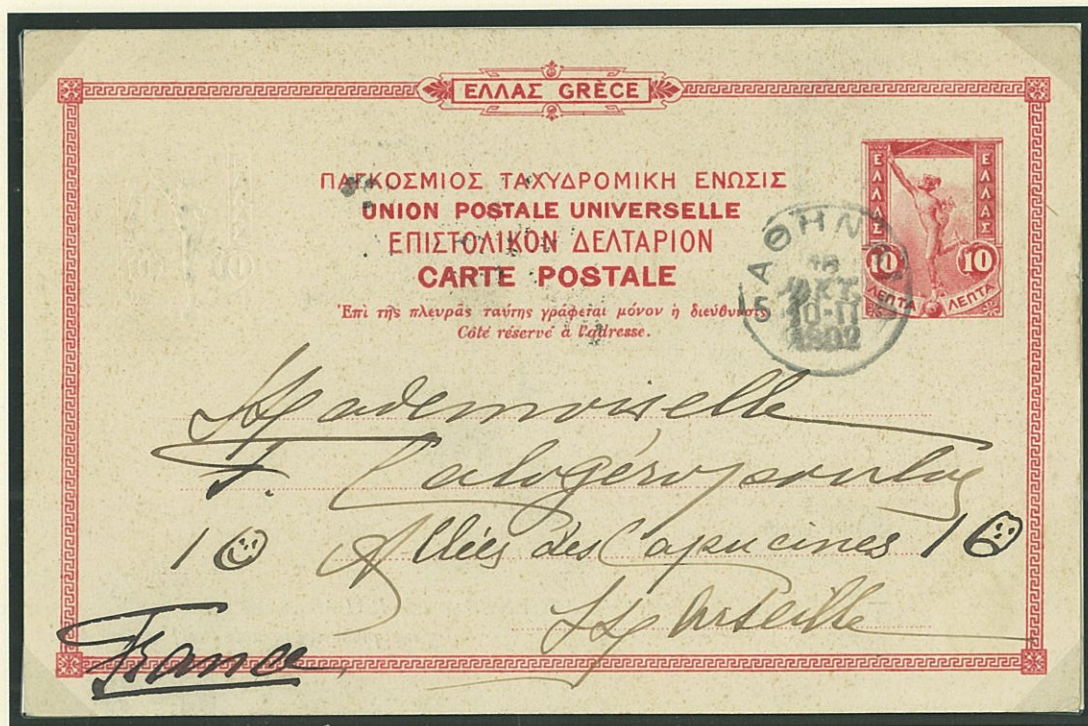 ΕΛΛΑΣ GRÈCE
ΠΑΓΚΟΣΜΙΟΣ ΤΑΧΥΔΡΟΜΙΚΗ ΕΝΩΣΙΣ
UNION POSTALE UNIVERSELLE
ΕΠΙΣΤΟΛΙΚΟΝ ΔΕΛΤΑΡΙΟΝ
CARTE POSTALE
Ἐπὶ τῆς πλευρᾶς ταύτης γράφεται μόνον ἡ διεύθυνσις
Côté réservé à l'adresse.
ΕΛΛΑΣ ΕΛΛΑΣ
10 10
ΛΕΠΤΑ ΛΕΠΤΑ
ΑΘΗΝΑΙ
5
ΟΚΤ.
10-11
1902
Mademoiselle
F. Calogéropoulos
Allées des Capucines
Marseille
France